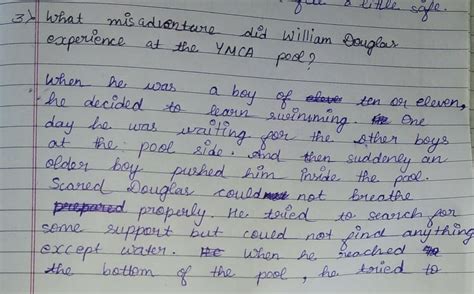 feel a little safe.
3) What misadventure did William Douglas
experience at the YMCA pool?
When he was a boy of eleve ten or eleven,
he decided to learn swimming. He One
day he was waiting for the other boys
at the pool side. And then suddenly an
older boy pushed him inside the pool.
Scared Douglas could not breathe
prepared properly. He tried to search for
some support but could not find anything
except water. He When he reached to
the bottom of the pool, he tried to